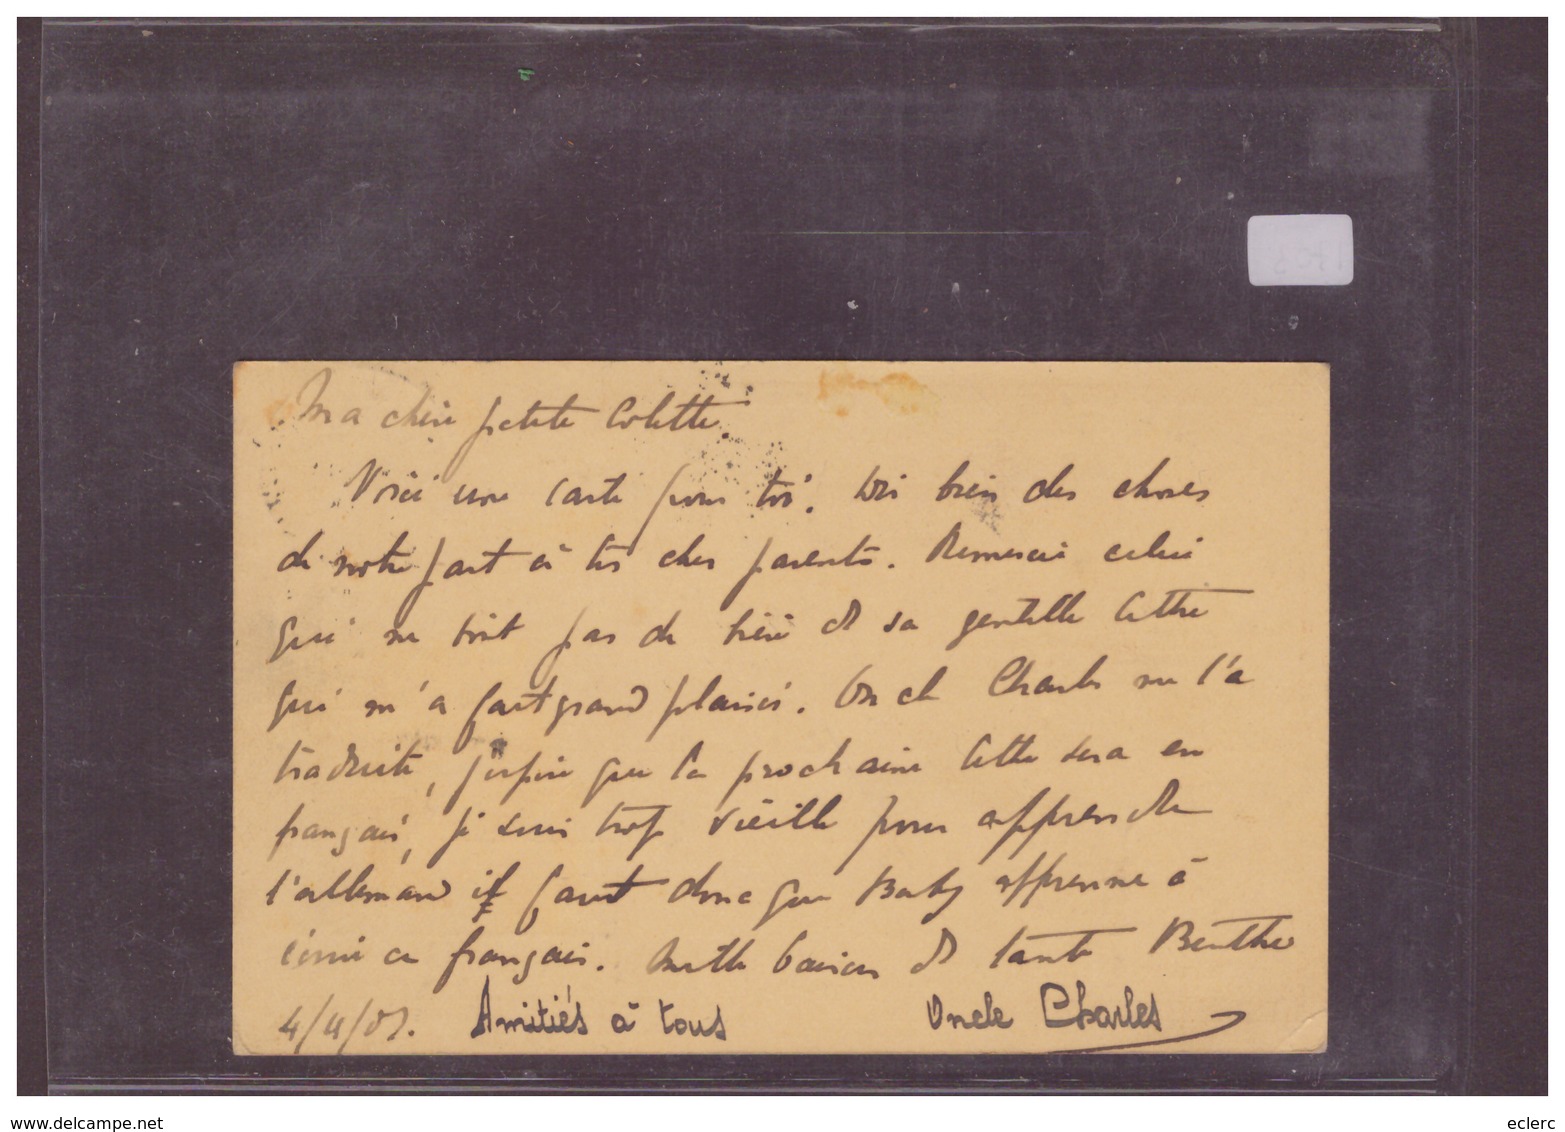 Ma chère petite Colette.
Voici une carte pour toi. Dis bien des choses
de notre part à tes chers parents. Remercie celui
qui ne doit pas de sa gentille lettre
qui m'a fait grand plaisir. Oncle Charles me l'a
traduite, j'espère que la prochaine lettre sera en
français, je suis trop vieille pour apprendre
l'allemand il faut donc que Baby apprenne à
écrire en français. Mille baisers de tante Berthe
4/4/07. Amitiés à tous Oncle Charles
www.delcampe.net
eclerc